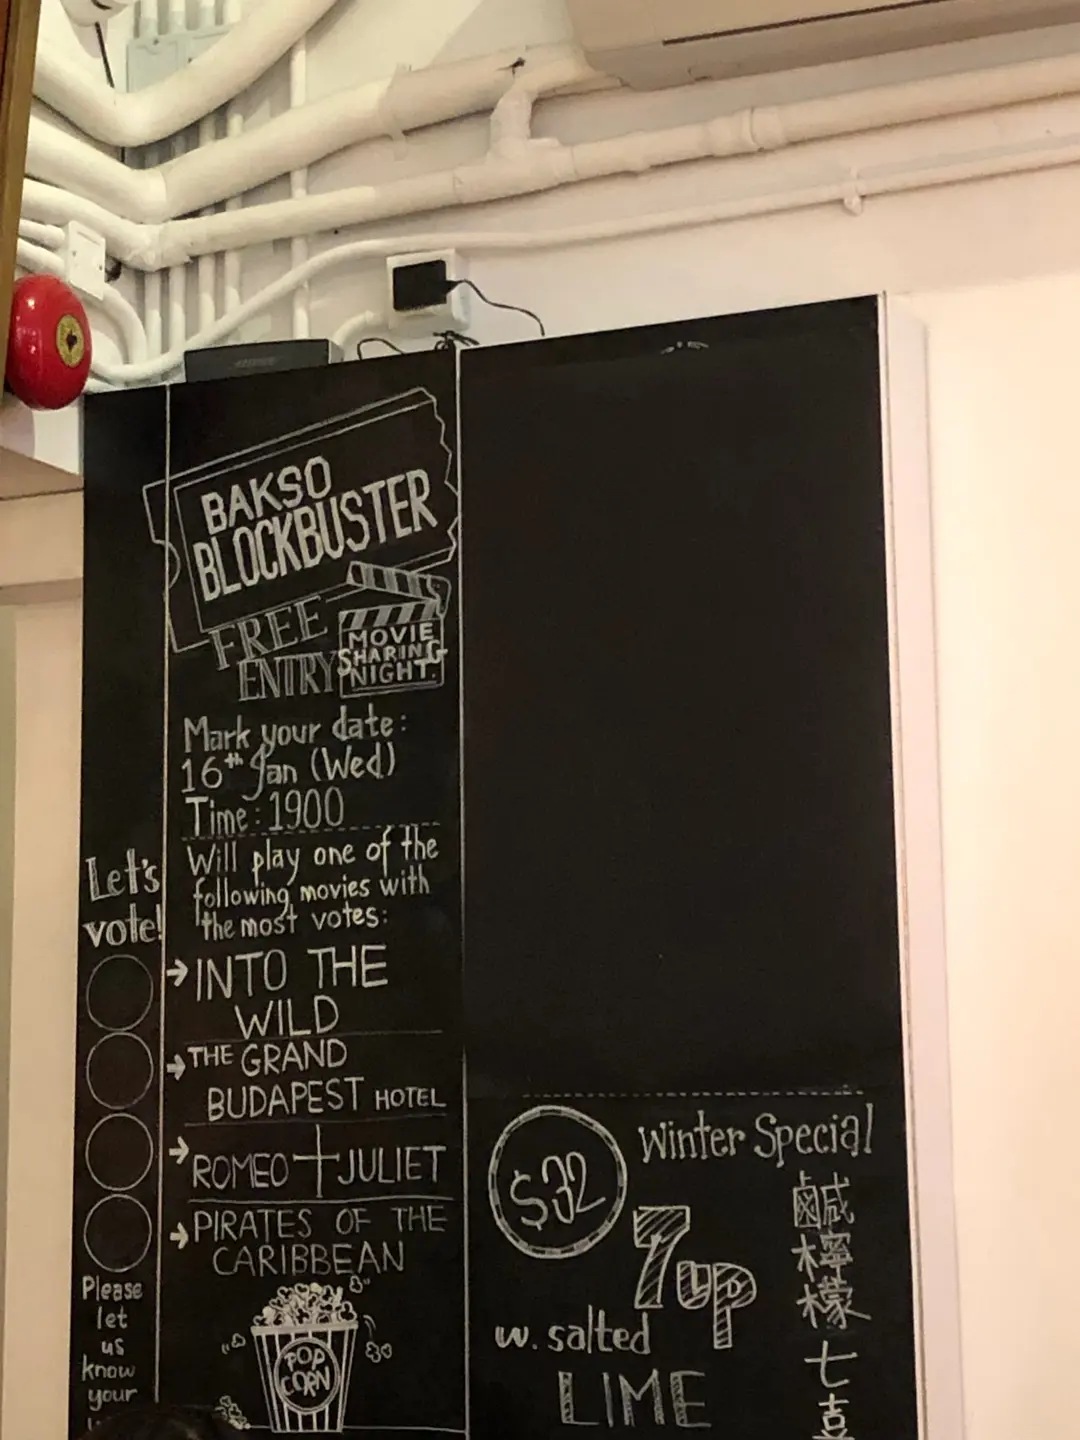 BAKSO
BLOCKBUSTER
FREE
ENTRY
MOVIE
SHARING
NIGHT.
Mark your date:
16th Jan (Wed)
Time: 1900
Will play one of the
following movies with
the most votes:
Let's
vote!
→ INTO THE
WILD
→ THE GRAND
BUDAPEST HOTEL
→ ROMEO + JULIET
→ PIRATES OF THE
CARIBBEAN
POP
CORN
Please
let
us
know
your
$32
Winter Special
7up
w. salted
LIME
鹹檸檬七喜